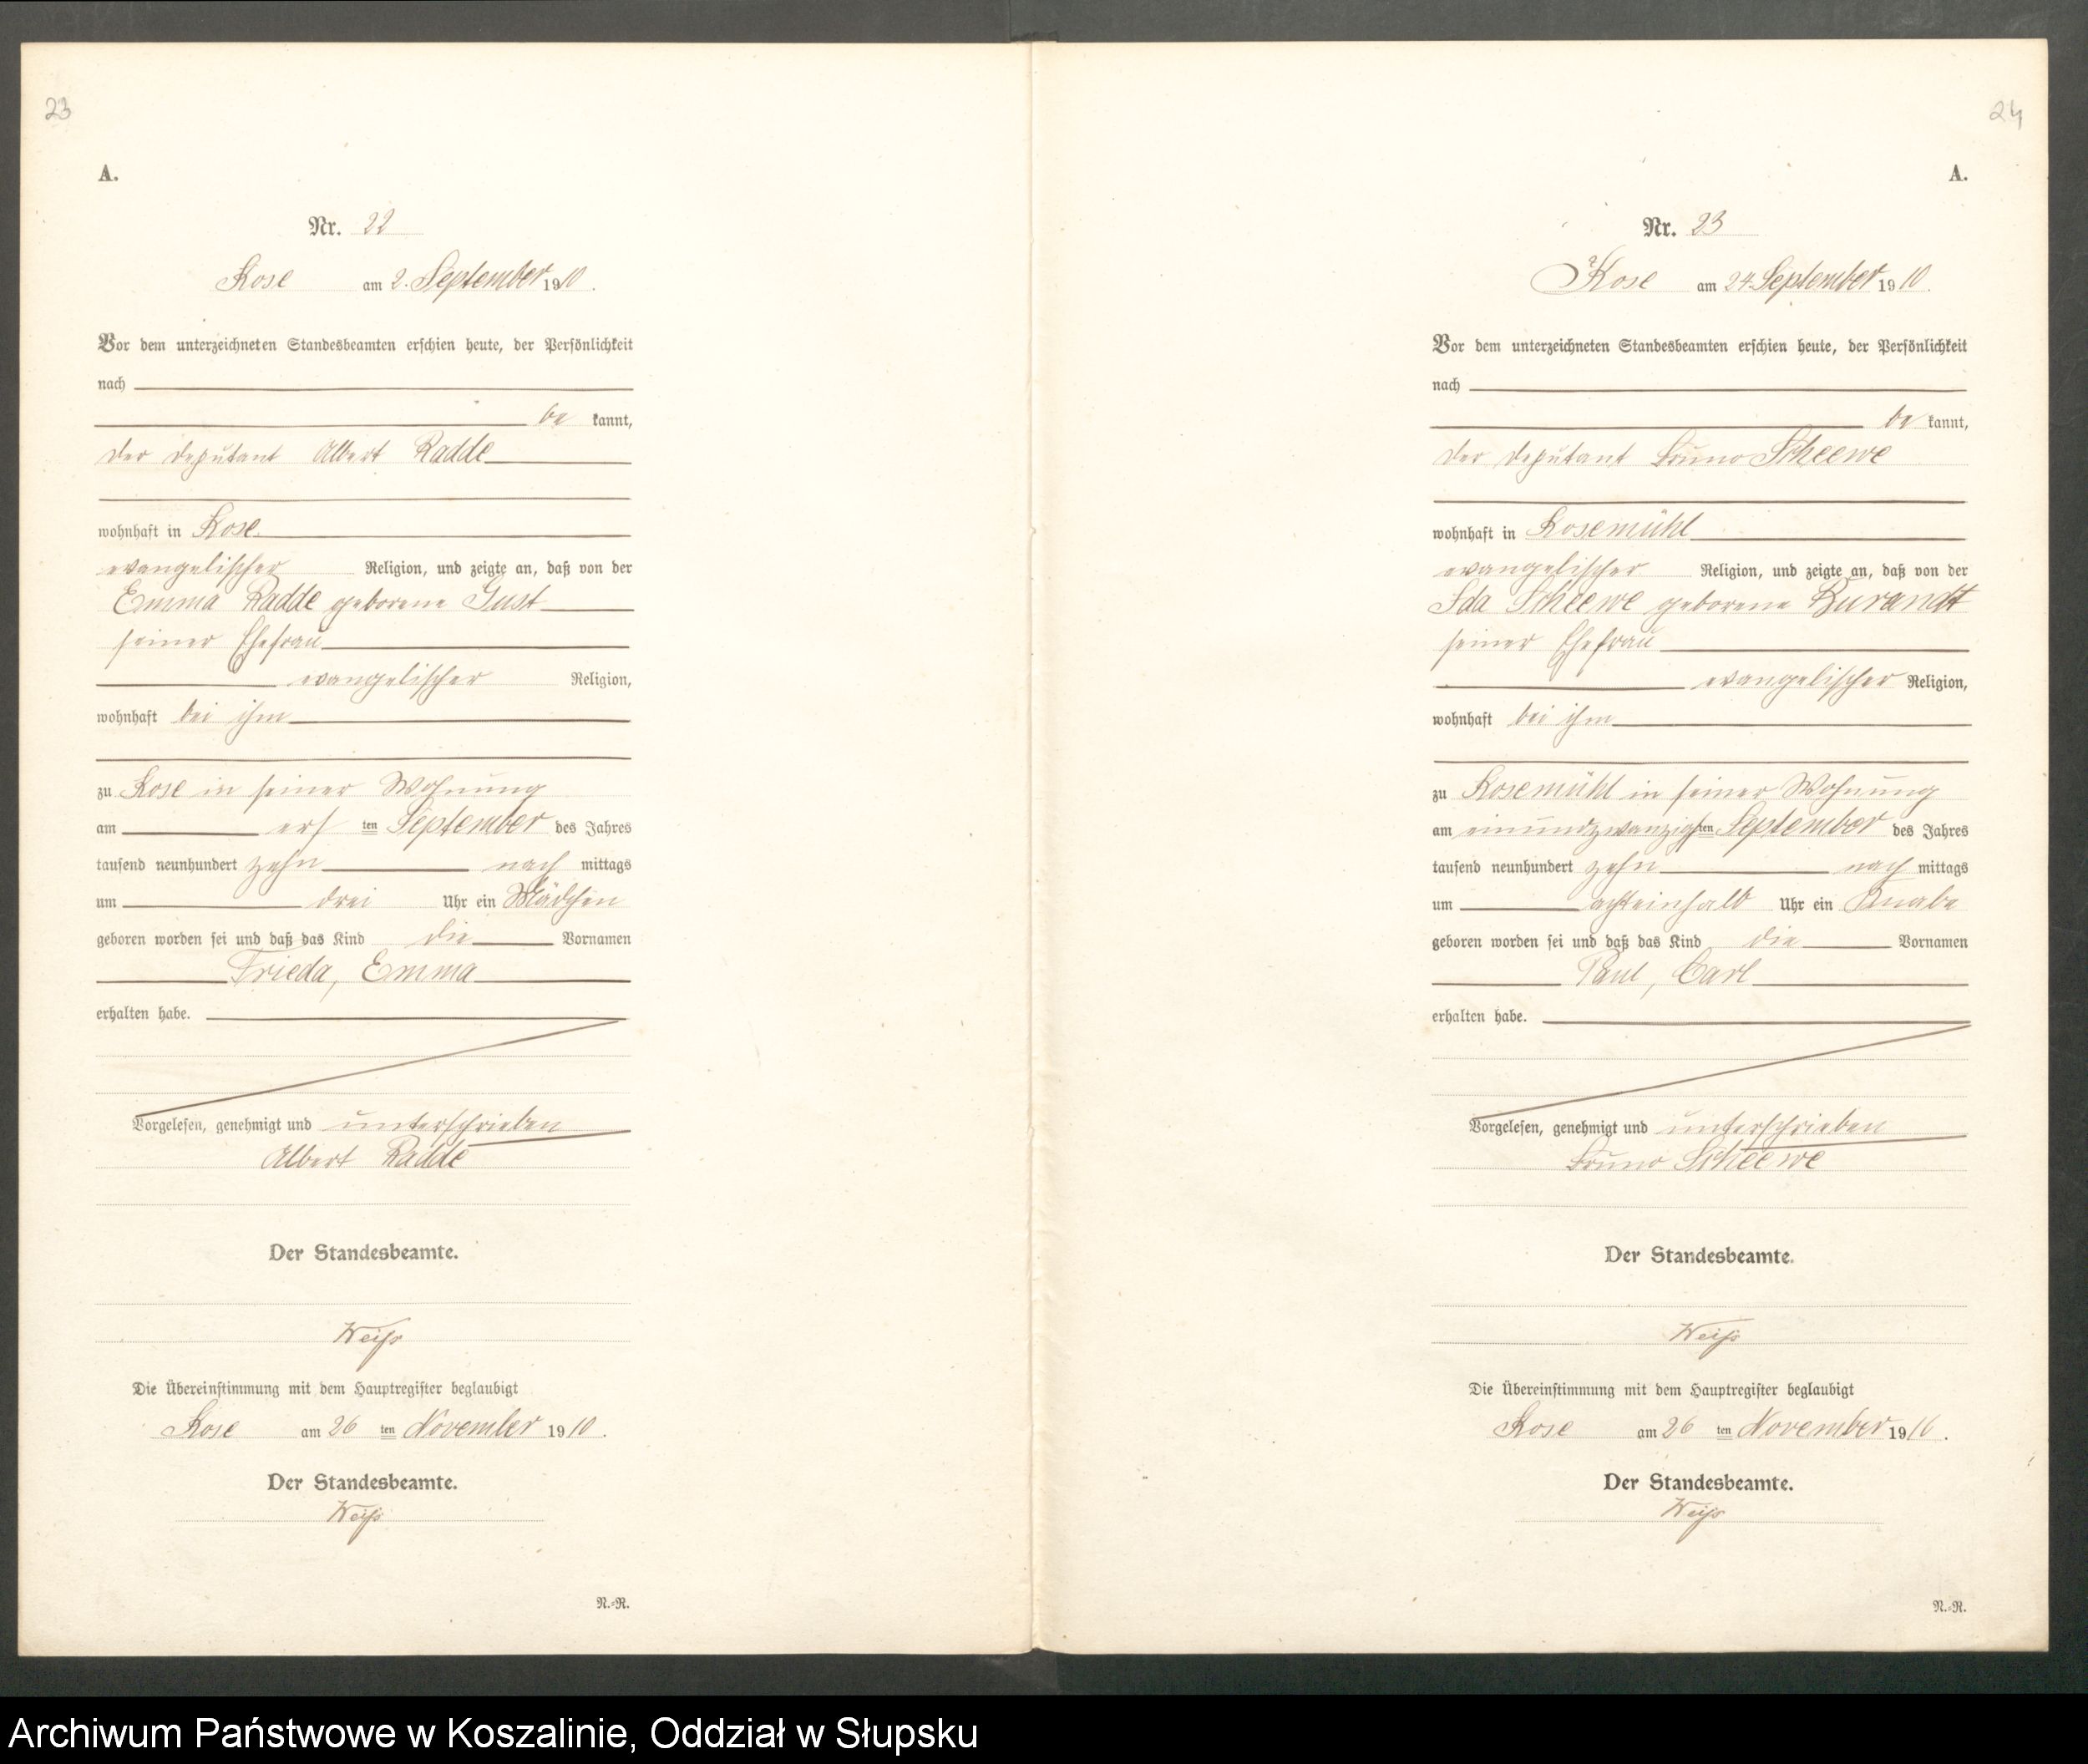 23
A.
Nr. 22
Rose am 2. September 1910.
Vor dem unterzeichneten Standesbeamten erschien heute, der Persönlichkeit
nach
be kannt,
der Deputant Albert Radde
wohnhaft in Rose
evangelischer Religion, und zeigte an, daß von der
Emma Radde geborene Gust
seiner Ehefrau
evangelischer Religion,
wohnhaft bei ihm
zu Rose in seiner Wohnung
am ersten September des Jahres
tausend neunhundert zehn nach mittags
um drei Uhr ein Mädchen
geboren worden sei und daß das Kind die Vornamen
Frieda, Emma
erhalten habe.
Vorgelesen, genehmigt und unterschrieben
Albert Radde
Der Standesbeamte.
Weiß
Die Übereinstimmung mit dem Hauptregister beglaubigt
Rose am 26 ten November 1910.
Der Standesbeamte.
Weiß
N.-R.
24
A.
Nr. 23
Rose am 24. September 1910.
Vor dem unterzeichneten Standesbeamten erschien heute, der Persönlichkeit
nach
be kannt,
der Deputant Bruno Scheewe
wohnhaft in Rosemühl
evangelischer Religion, und zeigte an, daß von der
Ida Scheewe geborene Burandt
seiner Ehefrau
evangelischer Religion,
wohnhaft bei ihm
zu Rosemühl in seiner Wohnung
am einundzwanzigsten September des Jahres
tausend neunhundert zehn nach mittags
um achteinhalb Uhr ein Knabe
geboren worden sei und daß das Kind die Vornamen
Paul, Carl
erhalten habe.
Vorgelesen, genehmigt und unterschrieben
Bruno Scheewe
Der Standesbeamte.
Weiß
Die Übereinstimmung mit dem Hauptregister beglaubigt
Rose am 26 ten November 1910.
Der Standesbeamte.
Weiß
N.-R.
Archiwum Państwowe w Koszalinie, Oddział w Słupsku